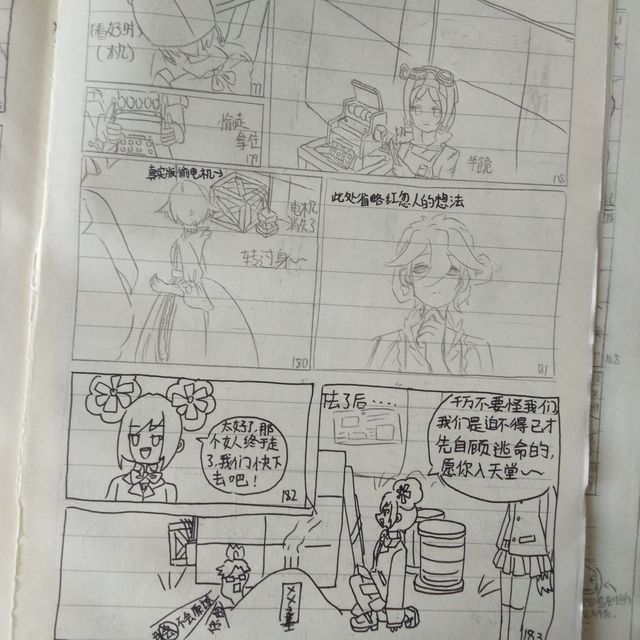 (看好时
机)
177
偷走
拿住
179
半跪
178
真实版偷电机~
电机
消失了
转过身~
180
此处省略红忽人的想法
181
太好了,那
个女人终于走
了,我们快下
去吧!
182
去了后……
千万不要怪我们,
我们是迫不得已才
先自顾逃命的,
愿你入天堂~~
183